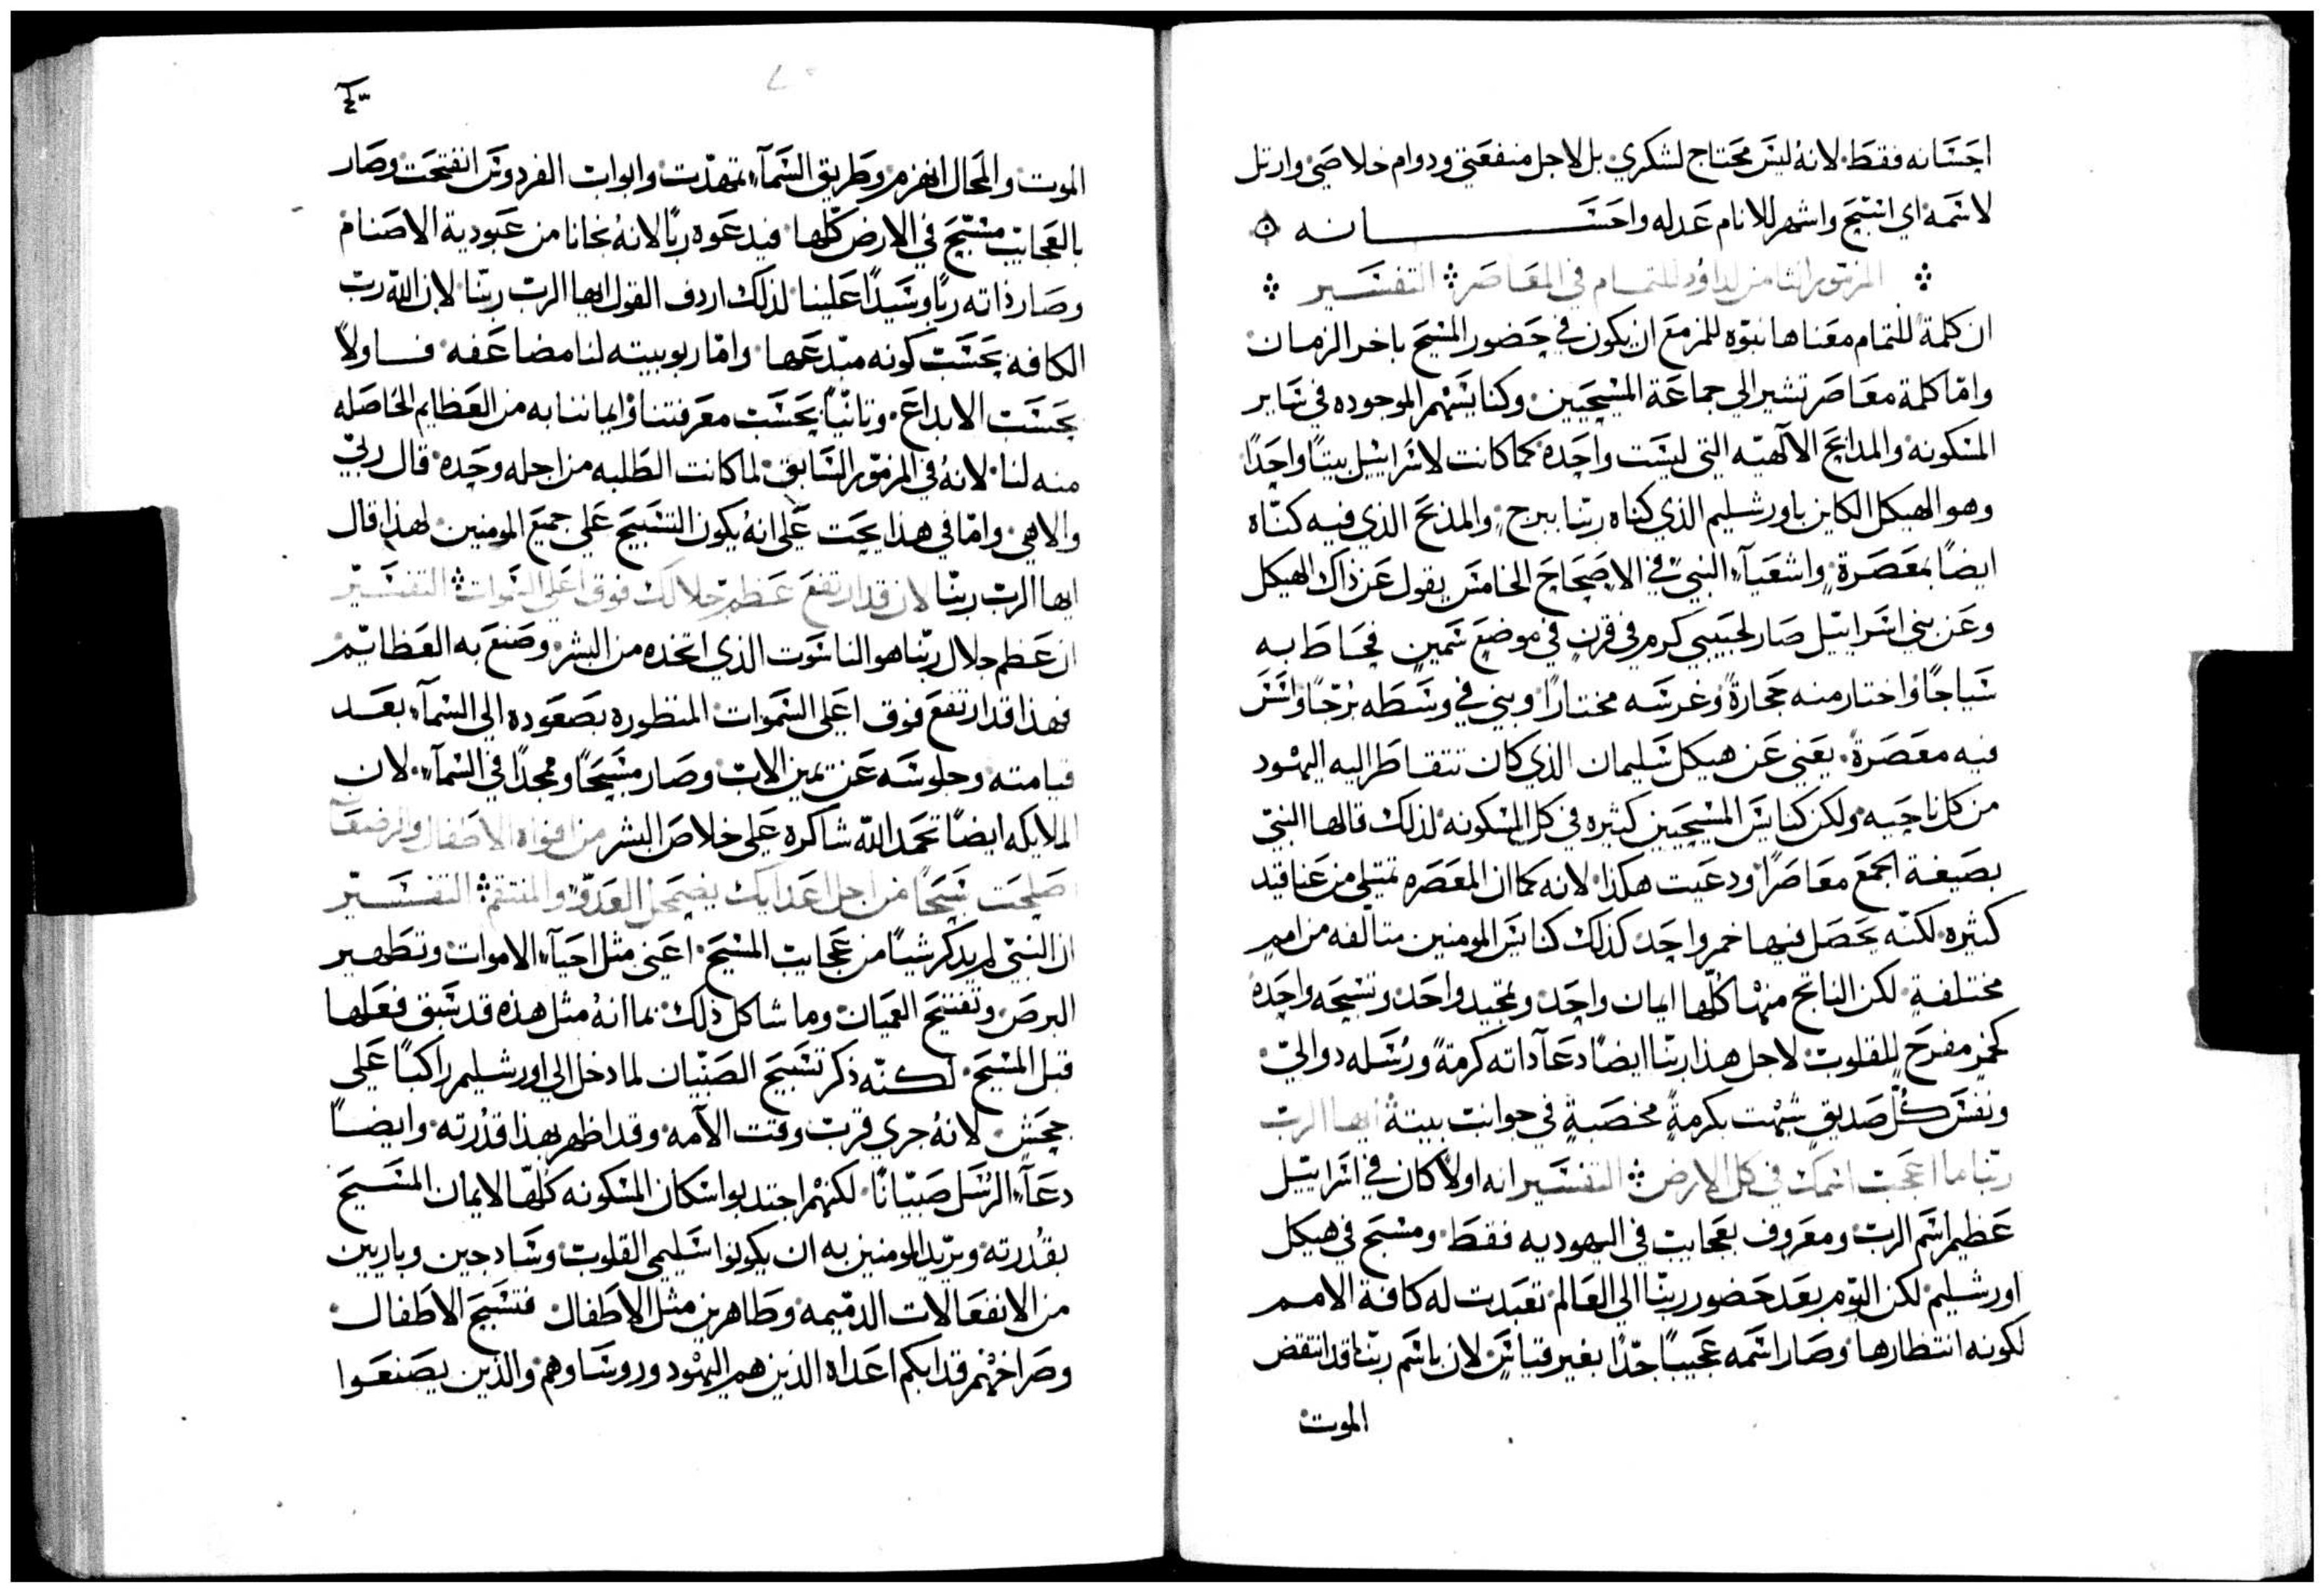 احسانه فقط. لانهُ ليس محتاج لشكري. بل لاجل منفعتي ودوام خلاصي. وارتل
لاسمه اي اسبّح واشهر للانام عدله واحســـانه
المزمور الثامن لداوُد للتمام في المعاصر التفسير
ان كلمة للتمام معناها نبوّه للمزمع ان يكون في حضور المسيح باخر الزمان
وامّا كلمة معاصر تشير الي جماعة المسيحيين. وكنايسهم الموجوده في ساير
المسكونه والمدابح الآلهيّه التي ليست واحده. كما كانت لاسراييل بيتاً واحداً
وهو الهيكل الكاين باورشليم الذي كناه ربّنا ببرج. والمذبح الذي فيه كنّاه
ايضاً بمعصرة. واشعيآء النبيّ في الاصحاح الخامس يقول عن ذاك الهيكل
وعن بني اسراييل صار لحبيبي كرم في قرن في موضع سمين فحاط به
سياجًا واختار منه حجارةً وغرسه مختارًا. وبني في وسطه بُرجًا وانشر
فيه معصرةً. يعني عن هيكل سليمان الذي كان تتقاطر اليه اليهود
من كل ناحيه. ولكن كنايس المسيحيين كثيره في كل المسكونه. لذلك قالها النبيّ
بصيغة الجمع معاصرًا. ودعيت هكذا. لانه كما ان المعصره تمتلي من عناقيد
كثيره. لكنّه يحصل فيها خمر واحد. كذلك كنايس المومنين متالفه من امم
مختلفة. لكن الناتج منها كُلّها ايمان واحد. وتمجيد واحد. وتسبحه واحده
كخمرٍ مفرح للقلوب. لاجل هذا ربّنا ايضاً دعآ داته كرمةً ورُسُله دواليّ.
ونفس كُلّ صديق شُبهت بكرمةٍ مخصبةٍ في جوانب بيتهِ ايها الرب
ربّنا ما اعجب اسمك في كل الارض التفسير انه اولاً كان في اسراييل
عظيم اسم الرب. ومعروف بعجايب في اليهوديه فقط. ومسبّح في هيكل
اورشليم. لكن اليوم بعد حضور ربّنا الي العالم. تعبدت له كافة الامم
لكونه انتظارها. وصار اسمه عجيباً جدًّا بغير قياس. لان باسم ربّنا قد انتقض
الموت
الموت. والمحال انهزم. وطريق السمآء تمهدّت. وابواب الفردوس انفتحت. وصار
بالعجايب مسبّح في الارض كلّها. فيدعوه ربًا لانهُ نجانا من عبودية الاصنام
وصار ذاته ربًا وسيدًا علينا. لذلك اردف القول ايها الرب ربّنا. لان اللّه رب
الكافه بحسب كونه مبدعها. وامّا ربوبيته لنا مضاعفه. فـاولاً
بحسب الابداع. وتانيّاً بحسب معرفتنا وايماننا به من العظايم الحاصله
منه لنا. لانهُ في المزمور السابق. لما كانت الطلبه من اجله وحده. قال ربيّ
والاهي. وامّا في هذا يحت عَلي انهُ يكون التسبيح علي جميع المومنين. لهذا قال
ايها الرب ربّنا لان قد ارتفع عظم جلالك فوق اعلي السموات التفسير
ان عظم جلال ربّنا هو الناسوت الذي اتخده من البشر. وصنع به العظايم
فهذا قد ارتفع فوق اعلي السموات المنظوره بصعوده الي السمآء بعد
قيامته. وجلوسه عن يمين الاب. وصار مسبحًا وممجدًا في السمآء. لان
الملايكه ايضاً تحمد اللّه شاكره علي خلاص البشر من افواه الاطفال والرضعآ
اصلحت سبحًا من اجل اعدايك يضمحل العدوّ والمنتقم التفسير
ان النبيّ لم يدكر شياً من عجايب المسيح. اعني مثل احيآء الاموات. وتطهير
البرص. وتفتيح العميان. وما شاكل ذلك. بما انهُ مثل هذه قد سبق فعلها
قبل المسيح. لكنّه ذكر تسبيح الصبيان لما دخل الي اورشليم راكباً علي
جحش. لانهُ جري قرب وقت الآمه. وقد اظهر بهذا قدرته. وايضاً
دعآء الرُسل صبيّانًا. لكنهم اجتدبوا سكان المسكونه كلّها لايمان المسيح
بقُدرته. ويريد المومنين به ان يكونوا سليمي القلوب وسادجين. وباريين
من الانفعالات الدميمه. وطاهرين مثل الاطفال. فتسبيح الاطفال
وصراخهم قد ابكم اعداه الذين هم اليهود وروساوهم. والذين يصنعوا